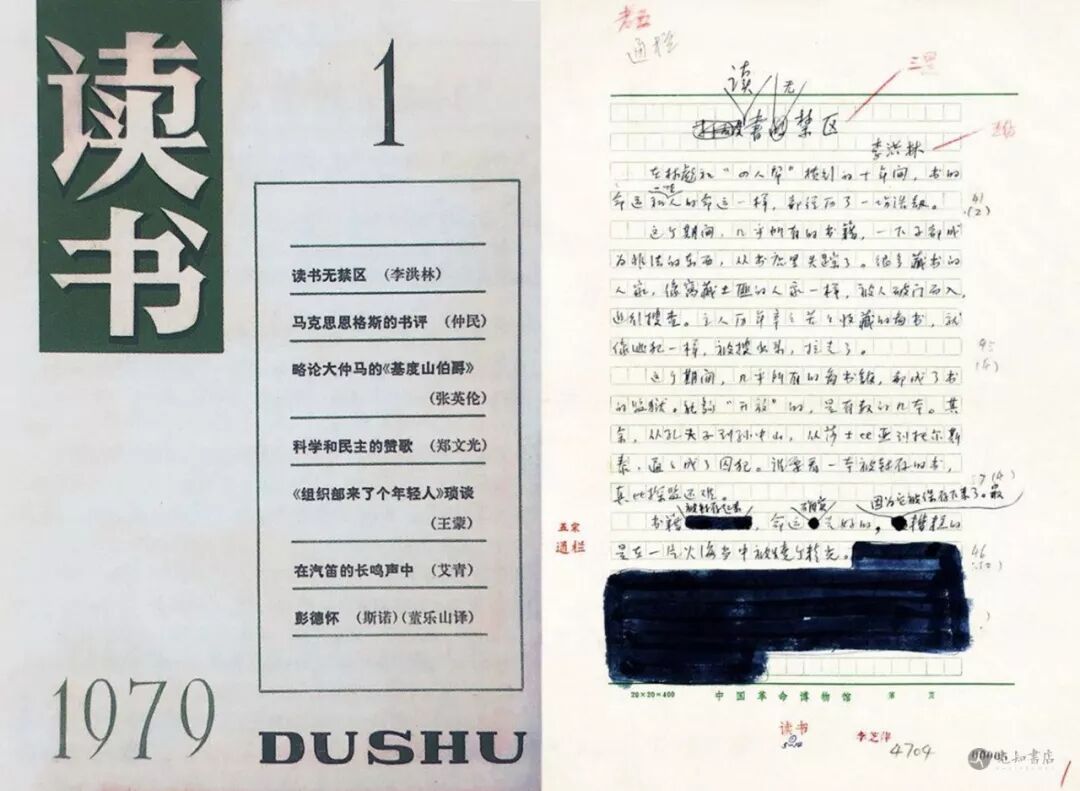 读书
1
读书无禁区 (李洪林)
马克思恩格斯的书评 (仲民)
略论大仲马的《基度山伯爵》
(张英伦)
科学和民主的赞歌 (郑文光)
《组织部来了个年轻人》琐谈
(王蒙)
在汽笛的长鸣声中 (艾青)
彭德怀 (斯诺)(董乐山译)
1979 DUSHU
通栏
三黑
读 无
书的禁区
李洪林
在林彪和“四人帮”横行的十年间,书的
命运和人的命运一样,都经历了一场浩劫。
这个期间,几乎所有的书籍,一下子都成
为非法的东西,从书店里失踪了。很多藏书的
人家,像窝藏土匪的人家一样,被人破门而入,
进行搜查。主人历年辛辛苦苦收藏的图书,就
像逃犯一样,被搜出来,拉走了。
这个期间,几乎所有的图书馆,都成了书
的监狱。能够“开放”的,是有数的几本。其
余,从孔夫子到孙中山,从莎士比亚到托尔斯
泰,通通成了囚犯。谁要看一本被封存的书,
真比探监还难。
被封存起来 确实 因为它被保存下来了。最
书籍 命运 是好的, 糟糕的
是在一片火海当中被烧个精光。
五宋
通栏
20×20=400 中国革命博物馆 第 页
读书
4704